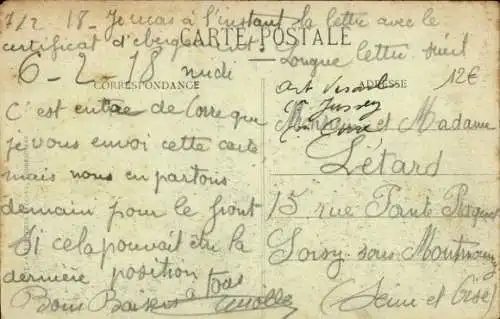 7/2 18 - Je reçois à l'instant ta lettre avec le
certificat d'ebergement.
CARTE POSTALE
Longue lettre suit
6-2-18 midi
CORRESPONDANCE
ADRESSE
12€
C'est entrée de Corre que
je vous envoi cette carte
mais nous en partons
demain pour le front
Si cela pouvait être la
dernière position
à tous
Bons Baisers
Art
Jussey
Monsieur et Madame
Létard
15 rue
Soisy sous Montmorency
(Seine et Oise)